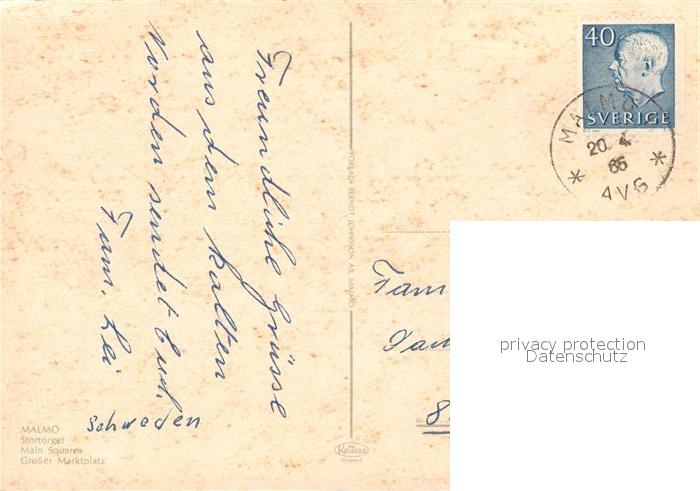 Freundliche Grüsse
aus dem kalten
Norden sendet Euch
Fam. Lei
Schweden
MALMÖ
Stortorget
Main Square
Großer Marktplatz
FÖRLAG: BERNDT JOHNSSON AB, MALMÖ
Krüger
40
SVERIGE
MALMÖ
20. 4
66
AVG
Fam
8
privacy protection
Datenschutz